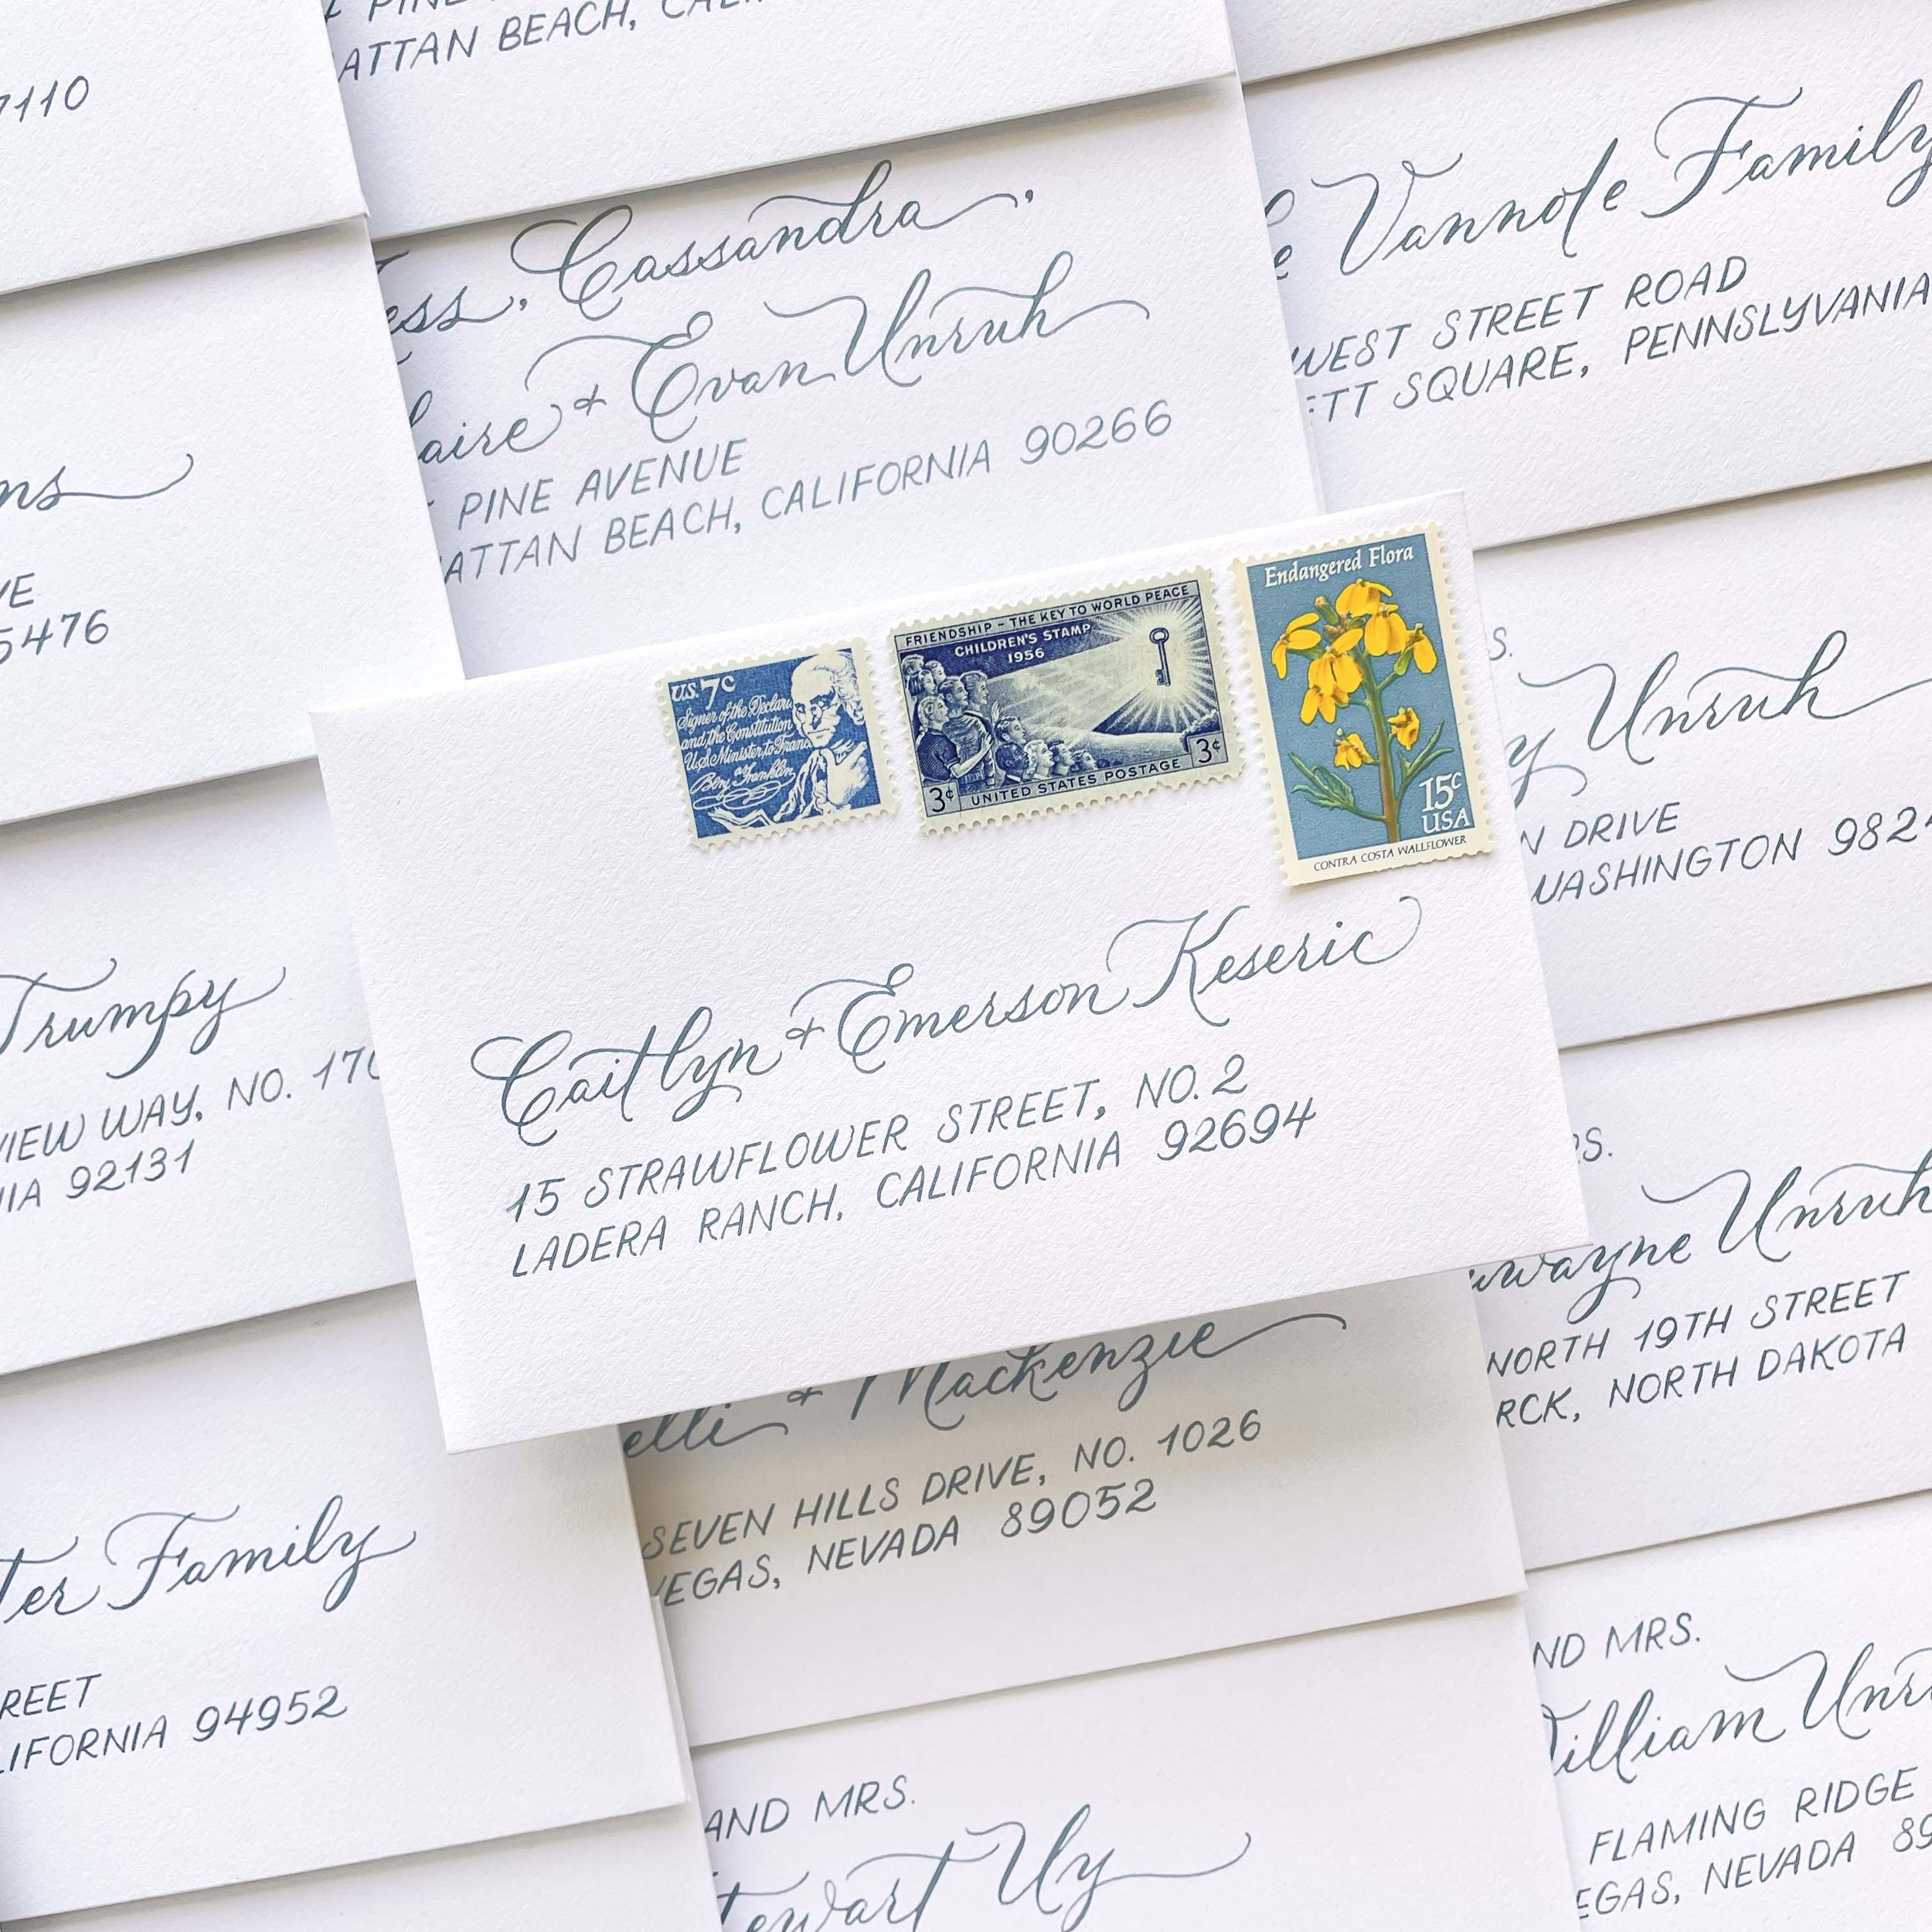 PINE
ATTAN BEACH,
7110
Cassandra,
& Evan Unruh
PINE AVENUE
ATTAN BEACH, CALIFORNIA 90266
Vannote Family
WEST STREET ROAD
ETT SQUARE, PENNSLYVANIA
5476
U.S. 7c
Signer of the Declara
and the Constitution
U.S. Minister to Franc
Benj Franklin
FRIENDSHIP – THE KEY TO WORLD PEACE
CHILDREN'S STAMP
1956
3¢ UNITED STATES POSTAGE 3¢
Endangered Flora
15c
USA
CONTRA COSTA WALLFLOWER
Caitlyn & Emerson Keseric
15 STRAWFLOWER STREET, NO. 2
LADERA RANCH, CALIFORNIA 92694
Unruh
DRIVE
WASHINGTON 982
Trumpy
VIEW WAY, NO. 170
NIA 92131
RS.
wayne Unruh
NORTH 19TH STREET
RCK, NORTH DAKOTA
elli & Mackenzie
SEVEN HILLS DRIVE, NO. 1026
VEGAS, NEVADA 89052
ter Family
REET
LIFORNIA 94952
AND MRS.
tewart Uy
ND MRS.
William Unru
FLAMING RIDGE
EGAS, NEVADA 89